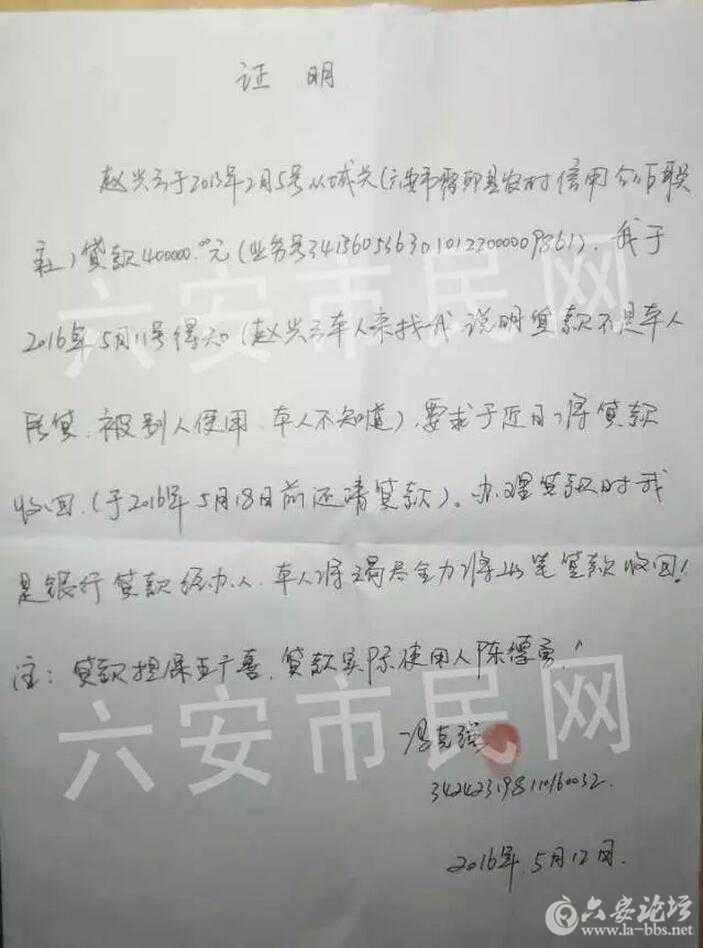 证 明
赵兴云于2013年2月5号从城关(六安市霍邱县农村信用合作联
社)贷款400000.00元(业务号3413605563010122000009861)。我于
2016年5月11号得知(赵兴云本人来找我说明贷款不是本人
所贷、被别人使用、本人不知道),要求于近日将贷款
收回.(于2016年5月18日前还清贷款)。办理贷款时我
是银行贷款经办人.本人将竭尽全力将此笔贷款收回!
注:贷款担保王广喜,贷款实际使用人陈德宙!
冯克强
342423198110160032.
2016年.5月12日.
六安市民网
六安市民网
六安市民网
六安论坛
www.la-bbs.net